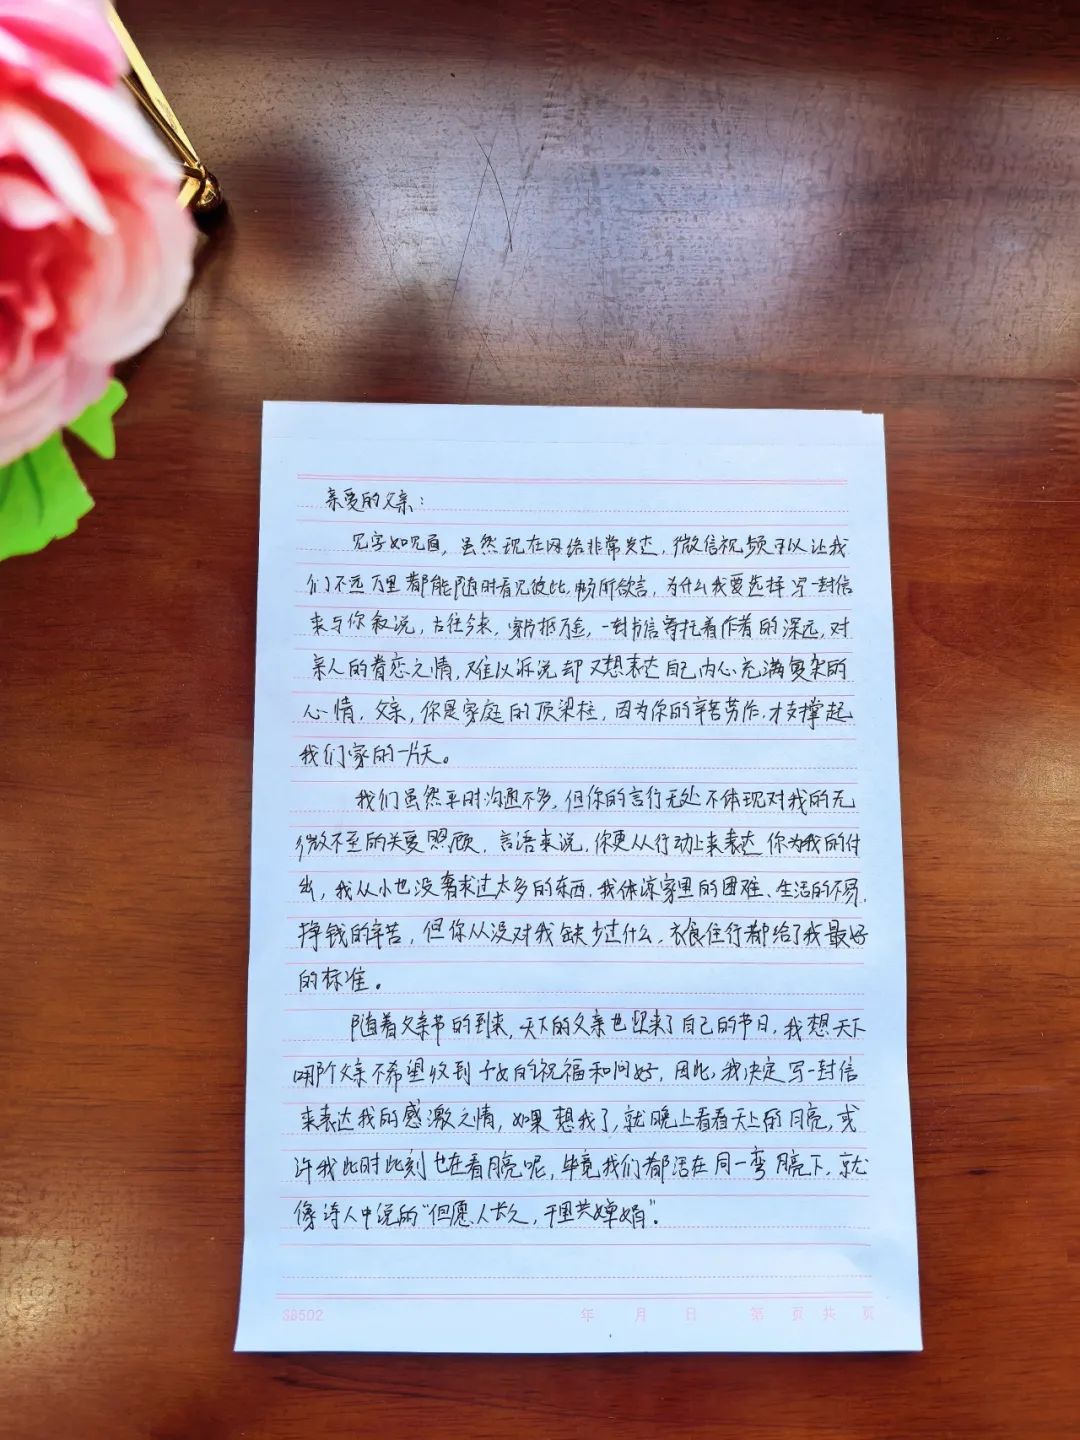 亲爱的父亲：
见字如见面，虽然现在网络非常发达，微信视频可以让我
们不远万里都能随时看见彼此，畅所欲言，为什么我要选择写一封信
来与你叙说，古往今来，家书抵万金，一封书信寄托着作者的深远，对
亲人的眷恋之情，难以诉说却又想表达自己内心充满复杂的
心情，父亲，你是家庭的顶梁柱，因为你的辛苦劳作，才支撑起
我们家的一片天。
我们虽然平时沟通不多，但你的言行无处不体现对我的无
微不至的关爱照顾，言语来说，你更从行动上来表达你为我的付
出，我从小也没奢求过太多的东西，我体谅家里的困难、生活的不易，
挣钱的辛苦，但你从没对我缺少过什么，衣食住行都给了我最好
的标准。
随着父亲节的到来，天下的父亲也迎来了自己的节日，我想天下
哪个父亲不希望收到子女的祝福和问好，因此，我决定写一封信
来表达我的感激之情，如果想我了，就晚上看看天上的月亮，或
许我此时此刻也在看月亮呢，毕竟我们都活在同一弯月亮下，就
像诗人中说的“但愿人长久，千里共婵娟”。
38502 年 月 日 第 页 共 页